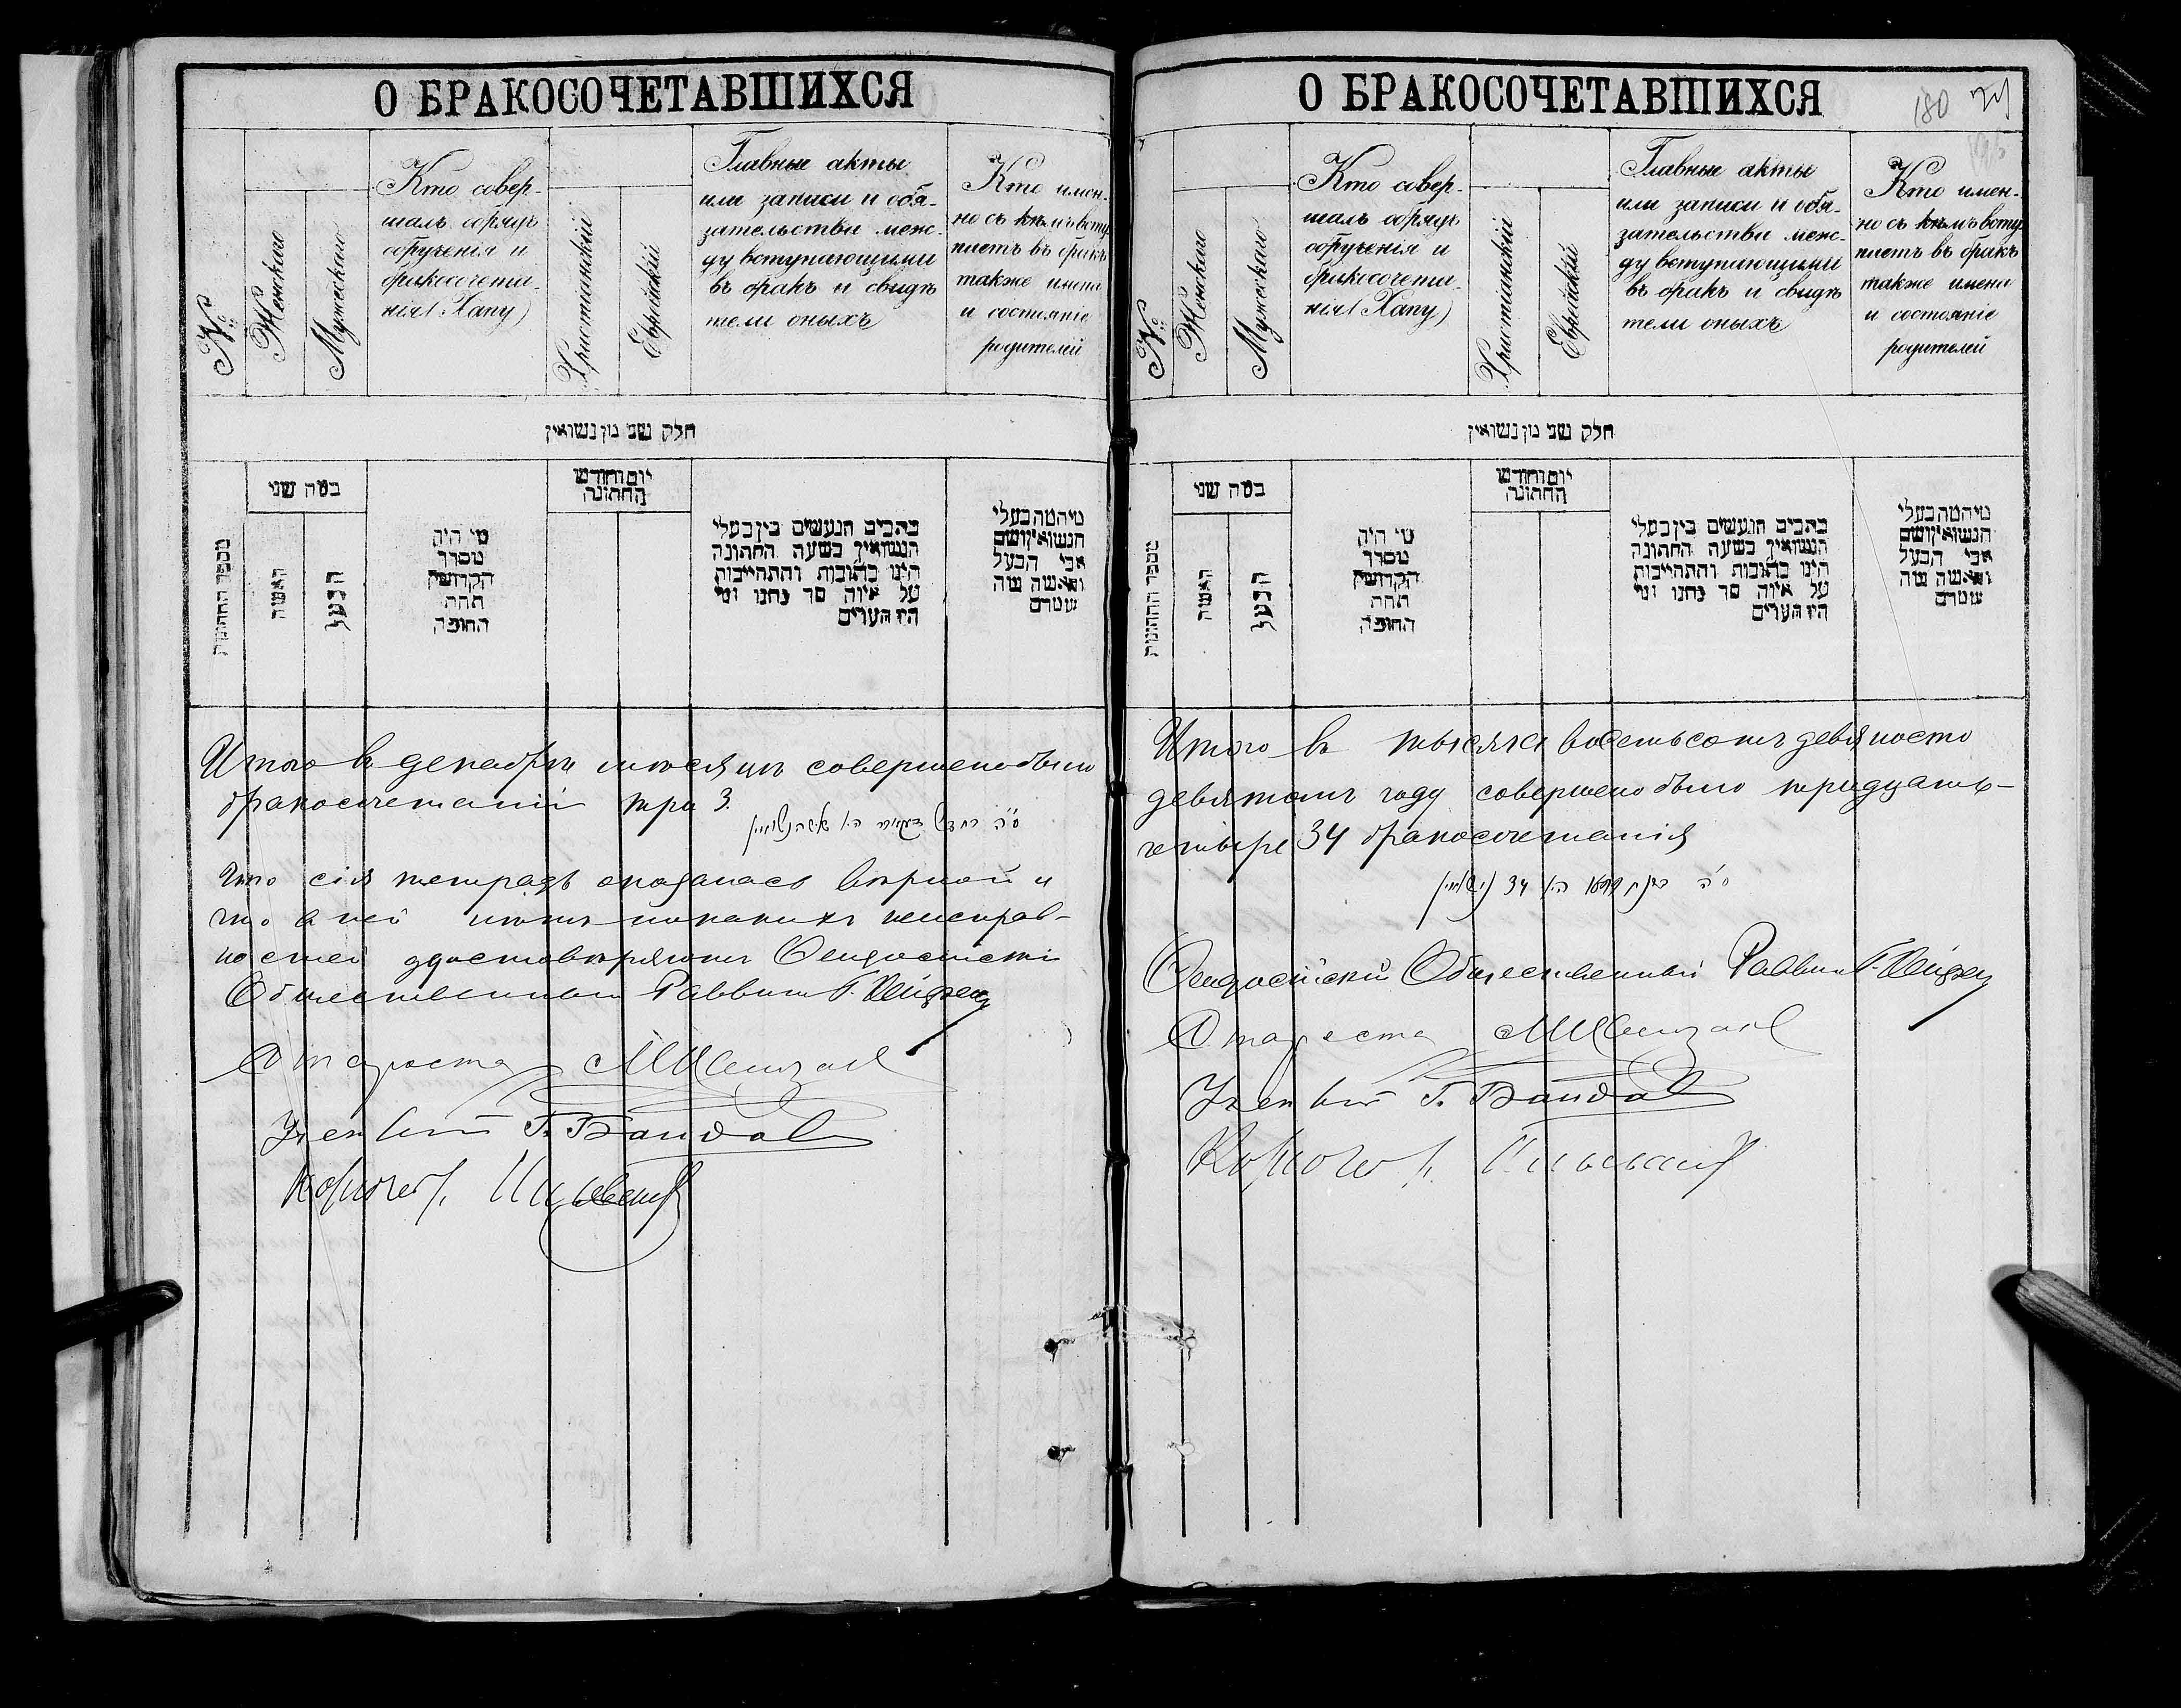 О БРАКОСОЧЕТАВШИХСЯ
№
Женскаго
Мужескаго
Кто совер-
шалъ обрядъ
обрученія и
бракосочета-
нія (Хапу)
Христіанскій
Еврейскій
Главные акты
или записи и обя-
зательства меж-
ду вступающими
въ бракъ и свидѣ
тели оныхъ
Кто имен-
но съ кѣмъ всту
паетъ въ бракъ
также имена
и состояніе
родителей
חלק שני מן נשואין
מספר החתונות
במה שני
האשה
הבעל
מי היה
מסדר
הקדושין
תחת
החופה
יום וחודש
החתונה
כתבים הנעשים בין בעלי
הנשואין בשעה החתונה
היינו כתובות והתהייבות
על איזה סך נתנו ומי
היו העדים
מי המה בעלי
הנשואין ושם
אבי הבעל
והאשה מה
שמרם
Итого въ декабрѣ мѣсяцѣ совершено было
бракосочетаній три 3.
что сія тетрадь оказалась вѣрной и
что въ ней нѣтъ никакихъ неисправ-
ностей удостовѣряютъ Ѳеодосійскій
Общественный Раввинъ Г.
Староста
Ученый Г.
Казначей
О БРАКОСОЧЕТАВШИХСЯ
180
№
Женскаго
Мужескаго
Кто совер-
шалъ обрядъ
обрученія и
бракосочета-
нія (Хапу)
Христіанскій
Еврейскій
Главные акты
или записи и обя-
зательства меж-
ду вступающими
въ бракъ и свидѣ
тели оныхъ
Кто имен-
но съ кѣмъ всту
паетъ въ бракъ
также имена
и состояніе
родителей
חלק שני מן נשואין
מספר החתונות
במה שני
האשה
הבעל
מי היה
מסדר
הקדושין
תחת
החופה
יום וחודש
החתונה
כתבים הנעשים בין בעלי
הנשואין בשעה החתונה
היינו כתובות והתהייבות
על איזה סך נתנו ומי
היו העדים
מי המה בעלי
הנשואין ושם
אבי הבעל
והאשה מה
שמרם
Итого въ тысяча восемьсотъ девяносто
девятомъ году совершено было тридцать-
четыре 34 бракосочетанія
34
Ѳеодосійскій Общественный Раввинъ Г.
Староста
Ученый Г.